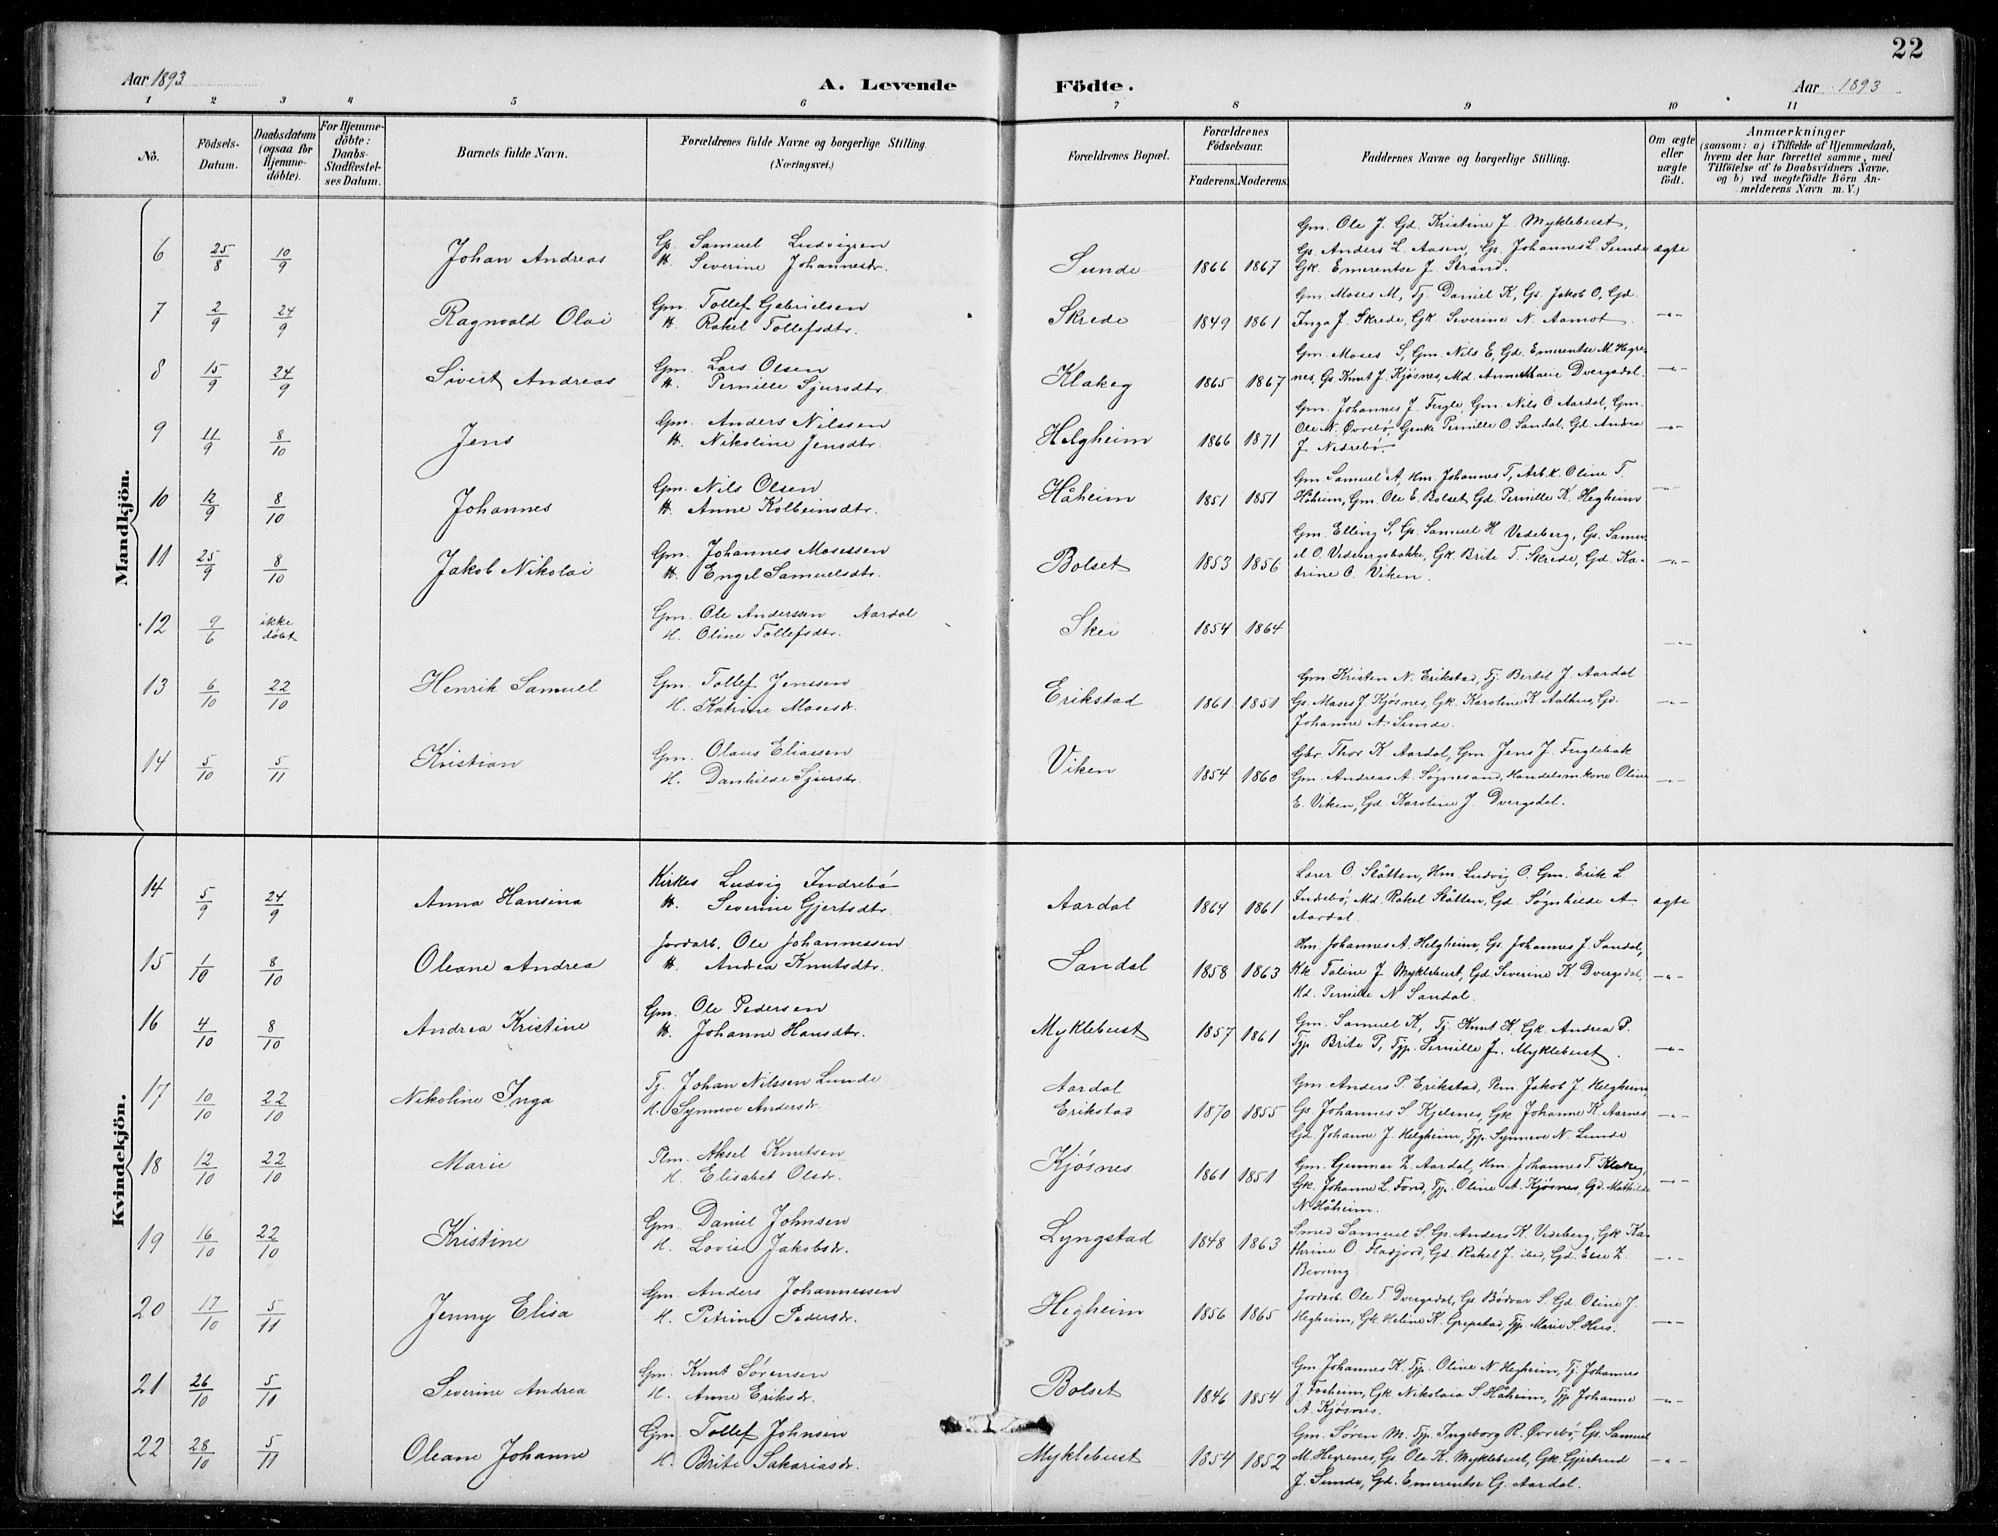 22
Aar 1893
A. Levende
Födte.
Aar 1893
1 2 3 4 5 6 7 8 9 10 11
No.
Födsels-Datum.
Daabsdatum (ogsaa for Hjemme-döbte).
For Hjemme-döbte: Daabs-Stadfæstel-ses Datum.
Barnets fulde Navn.
Forældrenes fulde Navne og borgerlige Stilling. (Næringsvei.)
Forældrenes Bopæl.
Forældrenes Födselsaar.
Faderens. Moderens.
Faddernes Navne og borgerlige Stilling.
Om ægte eller uægte födt.
Anmærkninger
(saasom: a) i Tilfælde af Hjemmedaab, hvem der har forrettet samme, med Tilföielse af to Daabsvidners Navne, og b) ved uægtefödte Börn An-melderens Navn m. V.)
Mandkjön.
6 25/8 10/9 Johan Andreas
Gp. Samuel Ludvigsen
H. Severine Johannesdr.
Sunde 1866 1867
Gm. Ole J. Gd. Kristine J. Myklebust,
Gs. Anders L. Aasen, Gs. Johannes L. Sunde
Gk. Emerentse J. Strand.
ægte
7 2/9 24/9 Ragnvald Olai
Gm. Tollef Gabrielsen
H. Rakel Tollefsdtr.
Skrede 1849 1861
Gm. Moses M, Tj. Daniel K, Gs. Jakob O, Gd.
Inga J. Skrede, Gk. Severine N. Aamot.
-"-
8 15/9 24/9 Sivert Andreas
Gm. Lars Olsen
H. Pernille Sjursdtr.
Klakeg 1865 1867
Gm. Moses S, Gm. Nils E, Gd. Emerentse M. Hegre-
nes, Gs. Knut J. Kjøsnes, Md. Anne Marie Dvergsdal.
-"-
9 11/9 8/10 Jens
Gm. Anders Nilssen
H. Nikoline Jensdtr.
Helgheim 1866 1871
Gm. Johannes J. Fugle, Gm. Nils O Aardal, Gm.
Ole N. Øvrebø, Genke Pernille O. Sandal, Gd. Andrea
J. Nedrebø.
-"-
10 12/9 8/10 Johannes
Gm. Nils Olsen
H. Anne Kolbeinsdtr.
Håheim 1851 1851
Gm. Samuel A, Hm. Johannes T, Arb.k. Oline T.
Håheim, Gm. Ole E. Bolset, Gd. Pernille K. Hegheim
-"-
11 25/9 8/10 Jakob Nikolai
Gm. Johannes Mosessen
H. Engel Samuelsdtr.
Bolset 1853 1856
Gm. Elling S, Gp. Samuel H Vedeberg, Gs. Samu-
el O. Vedebergsbakke, Gk. Brite T. Skrede, Gd. Ka-
trine O. Viken.
-"-
12 9/6 ikke döbt
Gm. Ole Anderssen Aardal
H. Oline Tollefsdtr.
Skei 1854 1864
-"-
13 6/10 22/10 Henrik Samuel
Gm. Tollef Jenssen
H. Katrine Mosesdr.
Erikstad 1861 1851
Gm Kristen N. Erikstad, Tj. Bertil J. Aardal
Gs. Moses J. Kjøsnes, Gk. Karoline K Aalhus, Gd.
Johanne A. Sunde.
-"-
14 5/10 5/11 Kristian
Gm. Olaus Eliassen
H. Danhilde Sjursdr.
Viken 1854 1860
Gbr. Thor K Aardal, Gm. Jens J. Fuglebak
Gm. Andreas A. Søgnesand, Handelsm.kone Oline
E. Viken, Gd. Karoline J. Dvergsdal.
-"-
Kvindekjön.
14 5/9 24/9 Anna Hansina
Kirkes Ludvig Indrebø
H. Severine Gjertsdtr.
Aardal 1864 1861
Lærer O Slåtten, Hm. Ludvig O. Gm. Erik L
Indebø, Md. Rakel Slåtten, Gd. Søgnhilde A
Aardal.
ægte
15 1/10 8/10 Oleane Andrea
Jordarb. Ole Johannessen
H. Andrea Knutsdtr.
Sandal 1858 1863
Hm. Johannes A. Helgheim, Gs. Johannes J. Sandal,
Kk. Taline J. Myklebust, Gd. Severine K Dvergsdal,
Hd. Pernille N Sandal.
-"-
16 4/10 8/10 Andrea Kristine
Gm. Ole Pedersen
H. Johanne Hansdtr.
Myklebust 1857 1861
Gm. Samuel K, Tj. Knut K Gk. Andrea P.
Tjp. Brite P, Tjp. Pernille J. Myklebust.
-"-
17 10/10 22/10 Nikoline Inga
Tj. Johan Nilssen Lunde
H. Synneve Andersdr.
Aardal
Erikstad 1870 1855
Gm Anders P. Erikstad, Pm. Jakob J. Helgheim
Gs. Johannes S Kjelsnes, Gk Johanne K. Aarnes
Gd. Johanne J. Helgheim, Tjp. Synneve N. Lunde
-"-
18 12/10 22/10 Marie
Plm. Aksel Knutsen
H. Elisabet Olsdr.
Kjøsnes 1861 1851
Gm. Gunnar Z. Aardal, Hm. Johannes T. Klakeg,
Gk. Johanne L. Fond, Tjp. Oline A. Kjøsnes, Gd. Mathilde
N. Håheim.
-"-
19 16/10 22/10 Kristine
Gm. Daniel Johnsen
H. Lovise Jakobsdr.
Lyngstad 1848 1863
Smed Samuel S. Gs. Anders K. Vedeberg, Gk Ka-
thrine O. Fladjord, Gd. Rakel J. ibid, Gd. Else Z.
Bevring
-"-
20 17/10 5/11 Jenny Elisa
Gm. Anders Johannessen
H. Petrine Pedersdr.
Hegheim 1856 1865
Jordarb. Ole T Dvergsdal, Gs. Bödvar S. Gd. Oline J.
Hegheim, Gk. Heline K. Grepstad, Tjp. Marie S. Hus.
-"-
21 26/10 5/11 Severine Andrea
Gm. Knut Sørensen
H. Anne Eriksdr.
Bolset 1846 1854
Gm. Johannes K. Tjp. Oline N. Hegheim, Tj. Johannes
J. Forheim, Gk. Nikolaia S. Håheim, Tjp. Johanne
A. Kjøsnes.
-"-
22 28/10 5/11 Oleane Johanne
Gm. Tollef Johnsen
H. Brite Sakariasdr.
Myklebust 1854 1852
Gm. Søren M. Tjp. Ingeborg R. Øvrebø, Gs. Samuel
M. Hegrenes, Gs. Ole K. Myklebust, Gk. Gjertrud
J. Sunde, Gd. Emerentse G. Aardal.
-"-